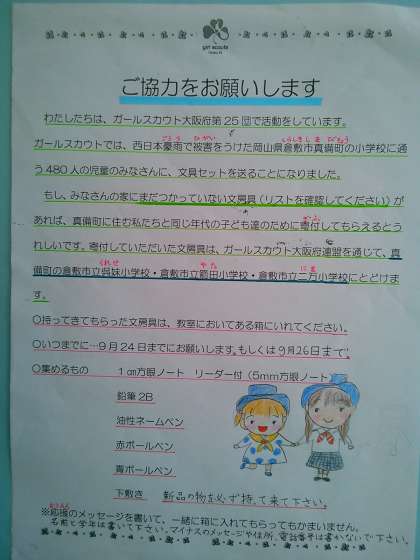 girl scouts
ご協力をお願いします
わたしたちは、ガールスカウト大阪府第25団で活動をしています。
ごうう ひがい くらしきしまびちょう
ガールスカウトでは、西日本豪雨で被害をうけた岡山県倉敷市真備町の小学校に通
う480人の児童のみなさんに、文具セットを送ることになりました。
もし、みなさんの家にまだつかっていない文房具(リストを確認してください)が
きふ
あれば、真備町に住む私たちと同じ年代の子ども達のために寄付してもらえるとう
れしいです。寄付していただいた文房具は、ガールスカウト大阪府連盟を通じて、真
くれせ やた にま
備町の倉敷市立呉妹小学校・倉敷市立箭田小学校・倉敷市立二万小学校にとどけま
す。
○持ってきてもらった文房具は、教室においてある箱にいれてください。
○いつまでに…9月24日までにお願いします。もしくは9月26日まで。
○集めるもの 1㎝方眼ノート リーダー付(5mm方眼ノート)
鉛筆2B
油性ネームペン
赤ボールペン
青ボールペン
下敷き 新品の物を必ず持って来て下さい。
おうえん
※応援のメッセージを書いて、一緒に箱に入れてもらってもかまいません。
名前と学年は書いて下さい。マイナスのメッセージや住所、電話番号は書かないで下さい。